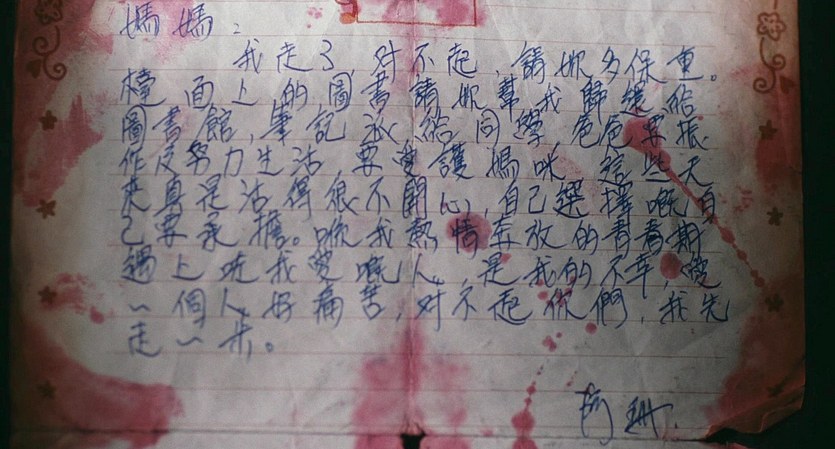 媽媽：
我走了，对不起，請妳多保重。
檯面上的圖書請妳幫我歸還給
圖書館，筆記永給同學，爸爸要振
作及努力生活，要愛護媽咪，這些天
來真是活得很不開心，自己選擇嘅自
己要承擔。喺我熱情奔放的青春期
遇上咗我愛嘅人，是我的不幸，愛
一個人好痛苦，对不起你們，我先
走一步。
阿珊